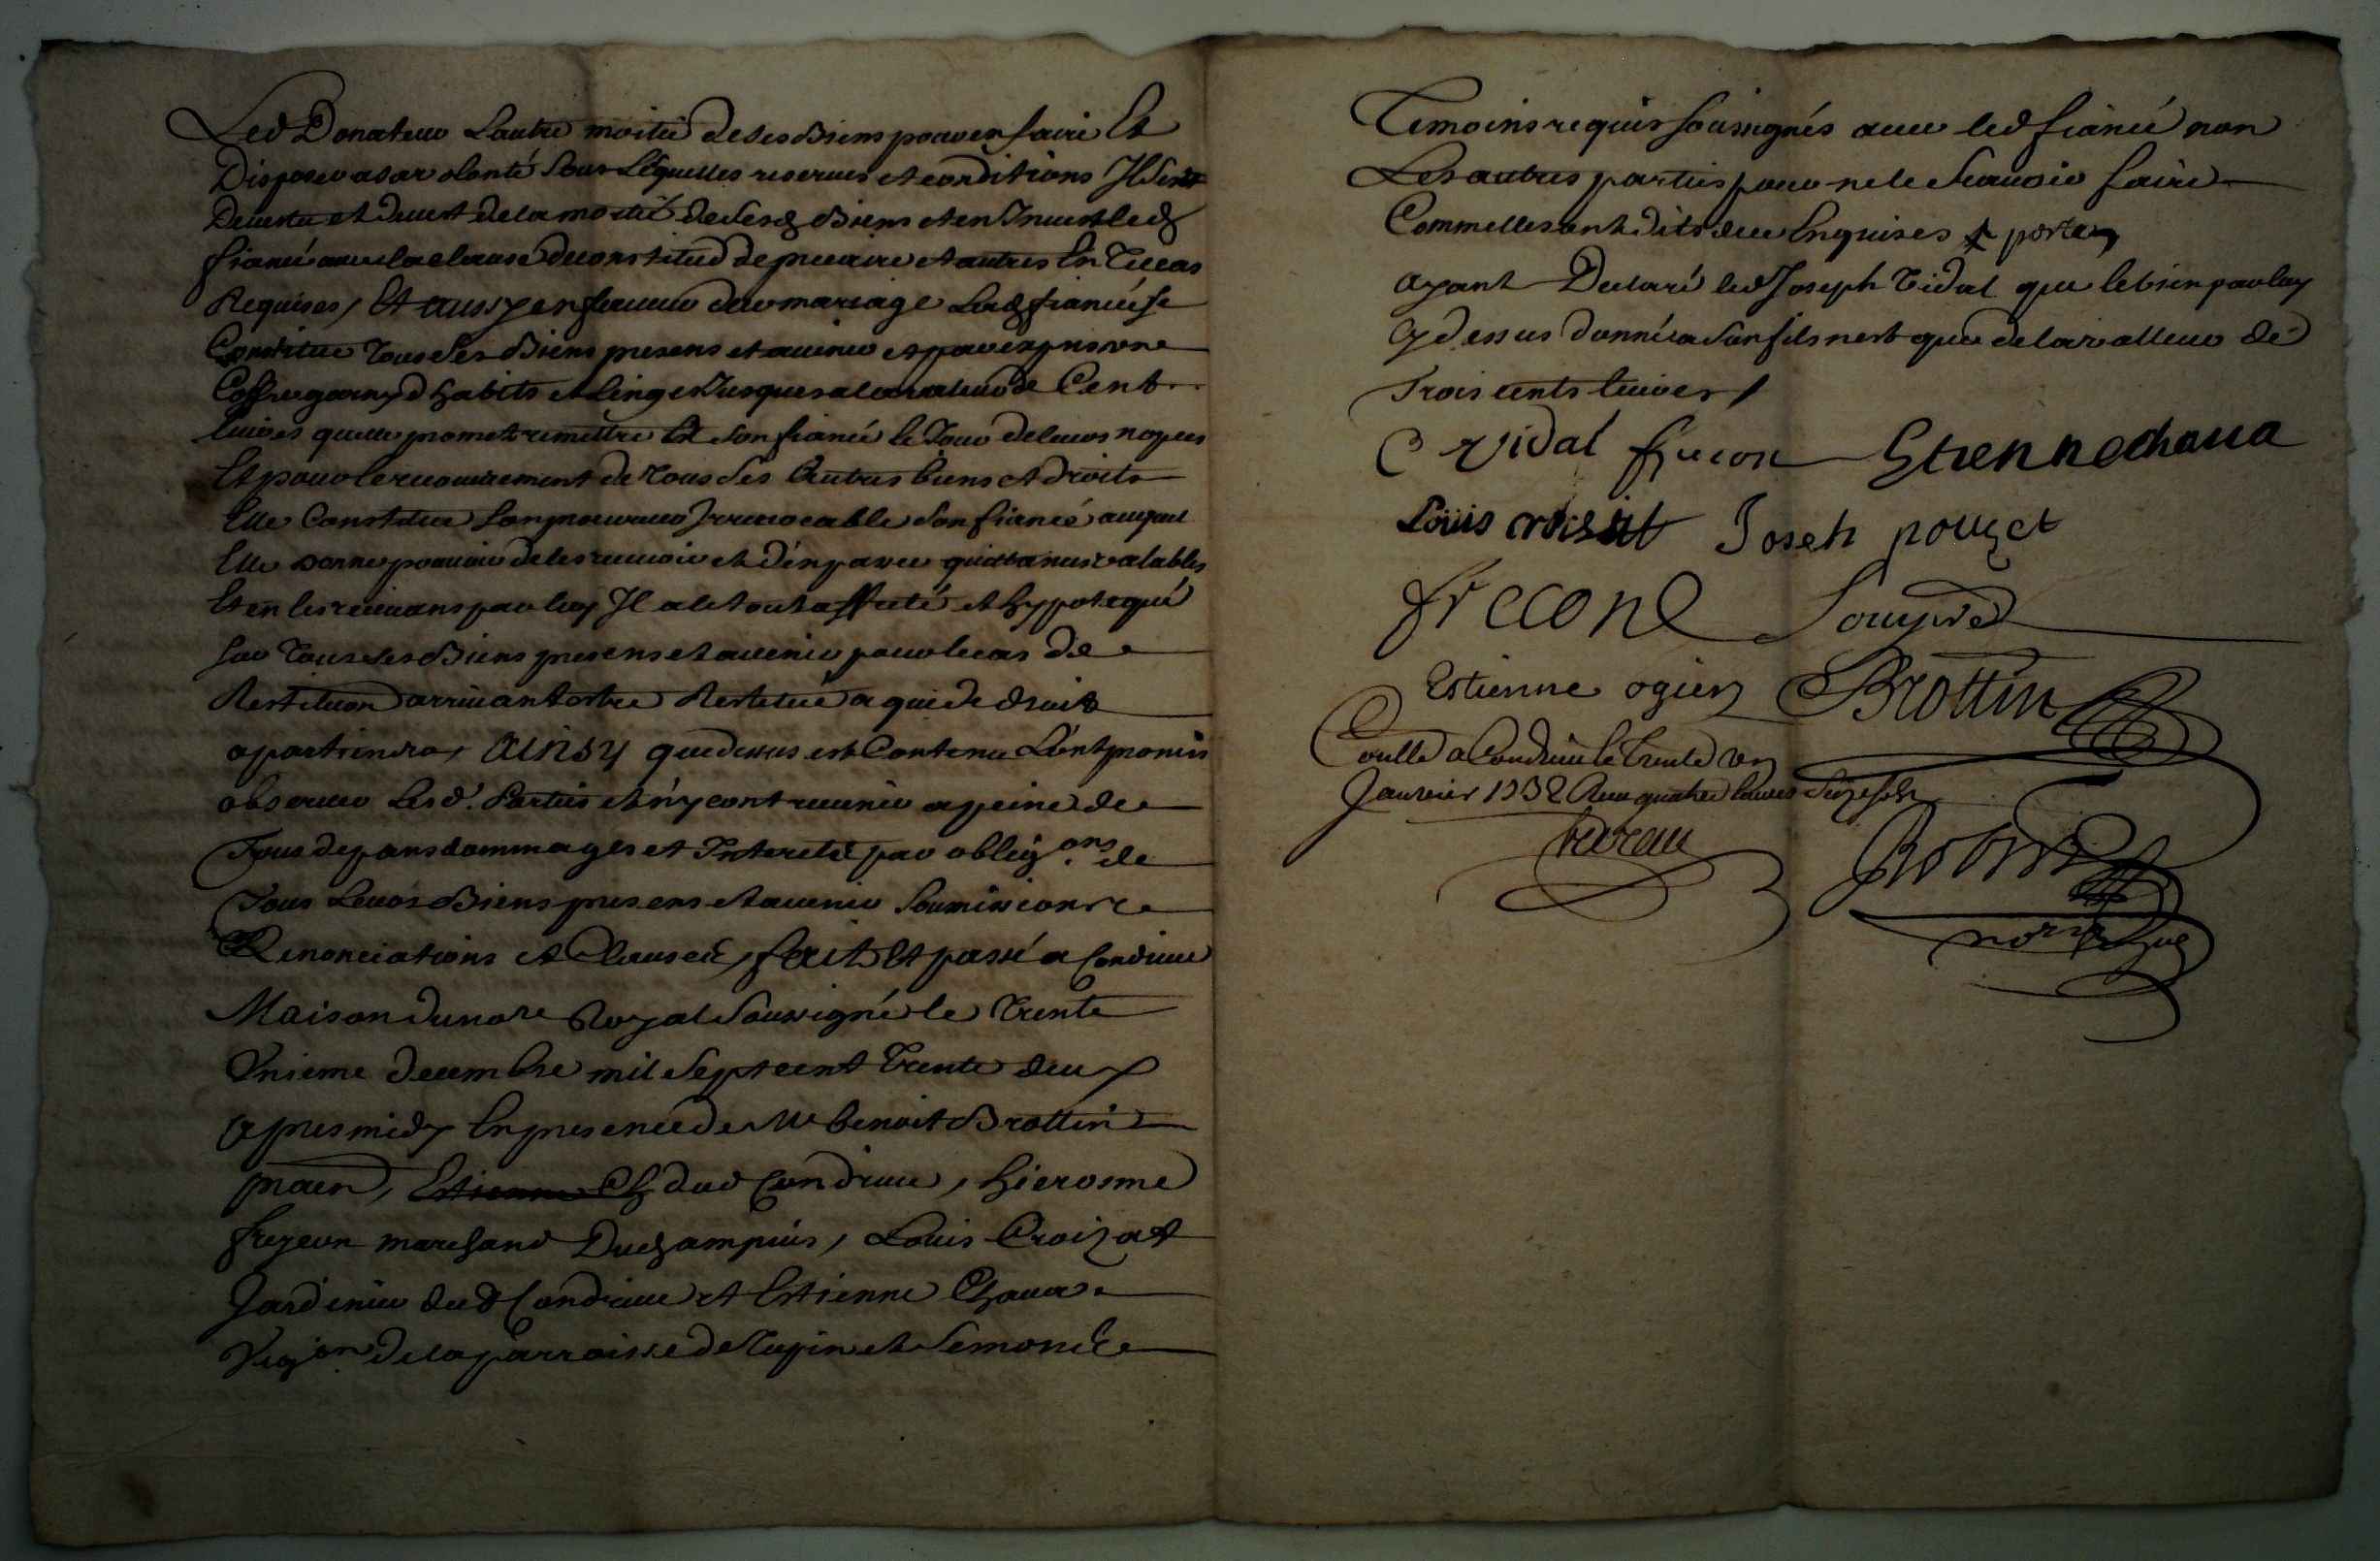 Led Donateur Lautre moitié de ses Biens pour en faire Et
Disposer a sa volonté Sous Léquelles reserves et conditions Il sest
Devestu et devest de la moitié de Sesd Biens et en Investled
fiancé avec la clause de constitud de precaire et autres En Tel cas
Requises, Et aussy en faveur dud mariage Lad fiancée se
Constitue Tous Ses Biens presens et avenir et par exprès vne
Coffre garny d'habits et linges Jusques a la valleur de Cent
livres quelle promet remettre Et son fiancé le Jour de leurs nopces
Et pour le recouvrement de Tous Ses Autres biens et droits
Elle Constitue Son procureur Irrevocable Son fiancé auquel
Elle Donne pouvoir de les recevoir et d'en passer quittances valables
Et en les recevans par luy Il a le tout affecté et hyppotequé
sur Tous Ses Biens presens et avenir pour le cas de
Restitution arrivant estre Restitué a qui de droit
apartiendra, ainsy que dessus est Contenu L'ont promis
observer Lesd. Parties et n'y contrevenir a peine de
Tous depans dommages et Interets par obligons de
Tous Leurs Biens presens et avenir Soumissions
Renonciations et Clauses, fait Et passé a Condrieu
Maison du nore Royal Soussigné le Trente
Vnieme decembre mil Sept cent Trente deux
apres midy En presence de Me benoit Brottin
praen, Estienne Ch dud Condrieu, hierosme
frezeon marchand Duchampuis, Louis Croizat
Jardinier dud Condrieu et Estienne Chava
Vigon de la parroisse de Tupin et Semond
Temoins requis soussignés avec led fiancé non
Les autres parties pour ne le Scavoir faire
Comme elles ont dits de ce Enquises
ayant Declaré led Joseph Vidal que le bien par luy
Cy dessus donné a son fils n'est que de la valleur de
Trois cents livres,
C Vidal frecon Etienne chava
Louis croisat Joseh pouzet
frecone Souyvet
Estienne ogier Brottin
Conllé a Condrieu le Trente vn
Janvier 1732 Recu quatre livres Seize sols